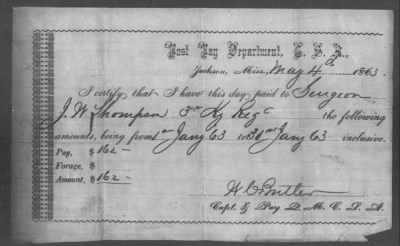 Post Pay Department, C. S. A.,
Jackson, Miss. May 4th 1863.
I certify that I have this day paid to Surgeon
J. W. Thompson 3rd Ky Regt the following
amounts, being from 1st Jany 63 to 31st Jany 63 inclusive.
Pay, $ 162 —
Forage, $
Amount, $ 162 —
Capt. & Pay Q. M. C. S. A.